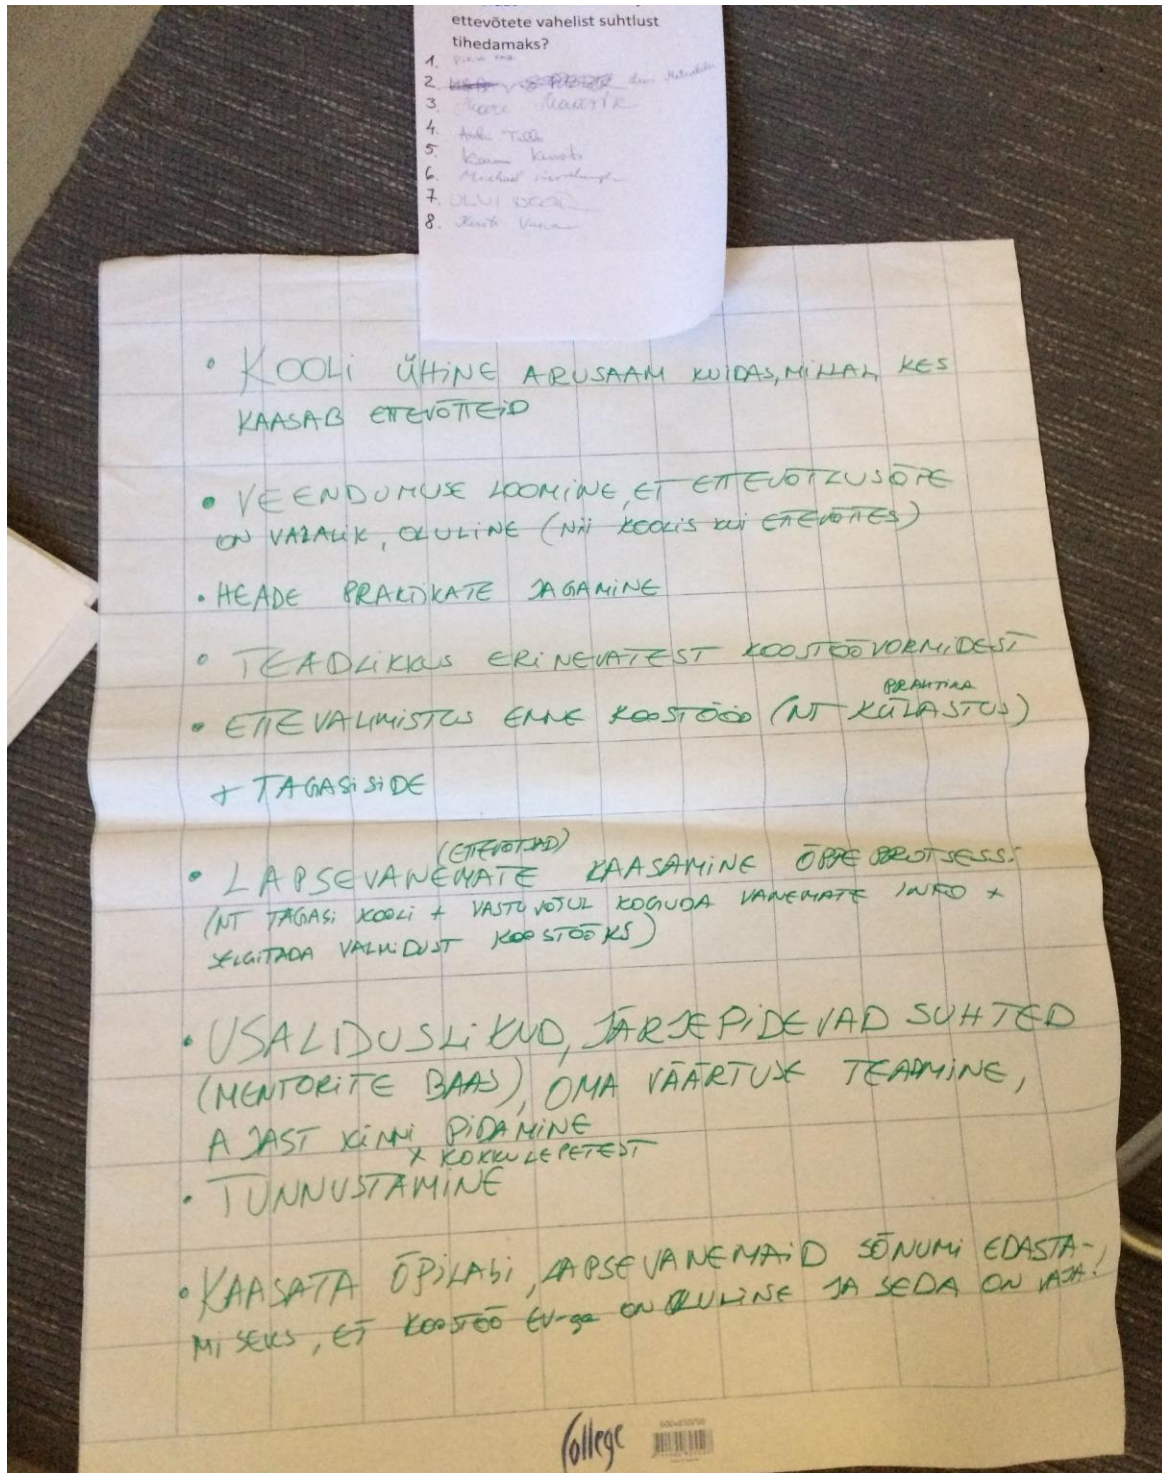 ettevõtete vahelist suhtlust
tihedamaks?
1.
2.
3. Maarik
4.
5.
6. Michael
7. ÜLVI
8.
• KOOLI ÜHINE ARUSAAM KUIDAS, MILLAL, KES
KAASAB ETTEVÕTTEID
• VEENDUMUSE LOOMINE, ET ETTEVÕTLUSÕPE
ON VAJALIK, OLULINE (NII KOOLIS KUI ETTEVÕTTES)
• HEADE PRAKTIKATE JAGAMINE
• TEADLIKKUS ERINEVATEST KOOSTÖÖVORMIDEST
PRAKTIKA
• ETTEVALMISTUS ENNE KOOSTÖÖD (NT KÜLASTUS)
+ TAGASISIDE
(ETTEVÕTJAD)
• LAPSEVANEMATE KAASAMINE ÕPPEPROTSESSI
(NT TAGASI KOOLI + VASTUVÕTUL KOGUDA VANEMATE INFO +
SELGITADA VALMIDUST KOOSTÖÖKS)
• USALDUSLIKUD, JÄRJEPIDEVAD SUHTED
(MENTORITE BAAS), OMA VÄÄRTUSE TEADMINE,
AJAST KINNI PIDAMINE
+ KOKKULEPETEST
• TUNNUSTAMINE
• KAASATA ÕPILASI, LAPSEVANEMAID SÕNUMI EDASTA-
MISEKS, ET KOOSTÖÖ EV-ga ON OLULINE JA SEDA ON VAJA!
College